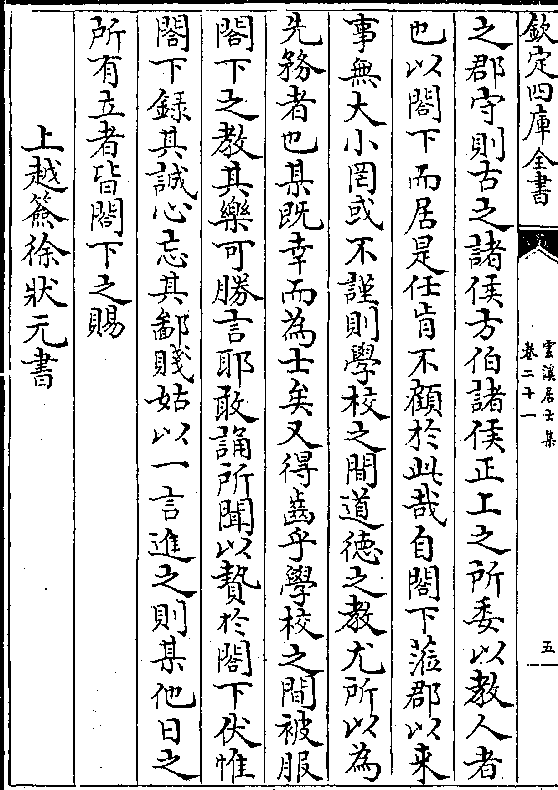 欽定四庫全書
雲溪居士集
卷二十一
五
之郡守則古之諸侯方伯諸侯正上之所委以教人者
也以閣下而居是任肯不顧於此哉自閣下蒞郡以來
事無大小罔或不謹則學校之間道德之教尤所以為
先務者也某既幸而為士矣又得齒乎學校之間被服
閣下之教其樂可勝言耶敢誦所聞以贄於閣下伏惟
閣下錄其誠心忘其鄙賤姑以一言進之則某他日之
所有立者皆閣下之賜
上越簽徐狀元書